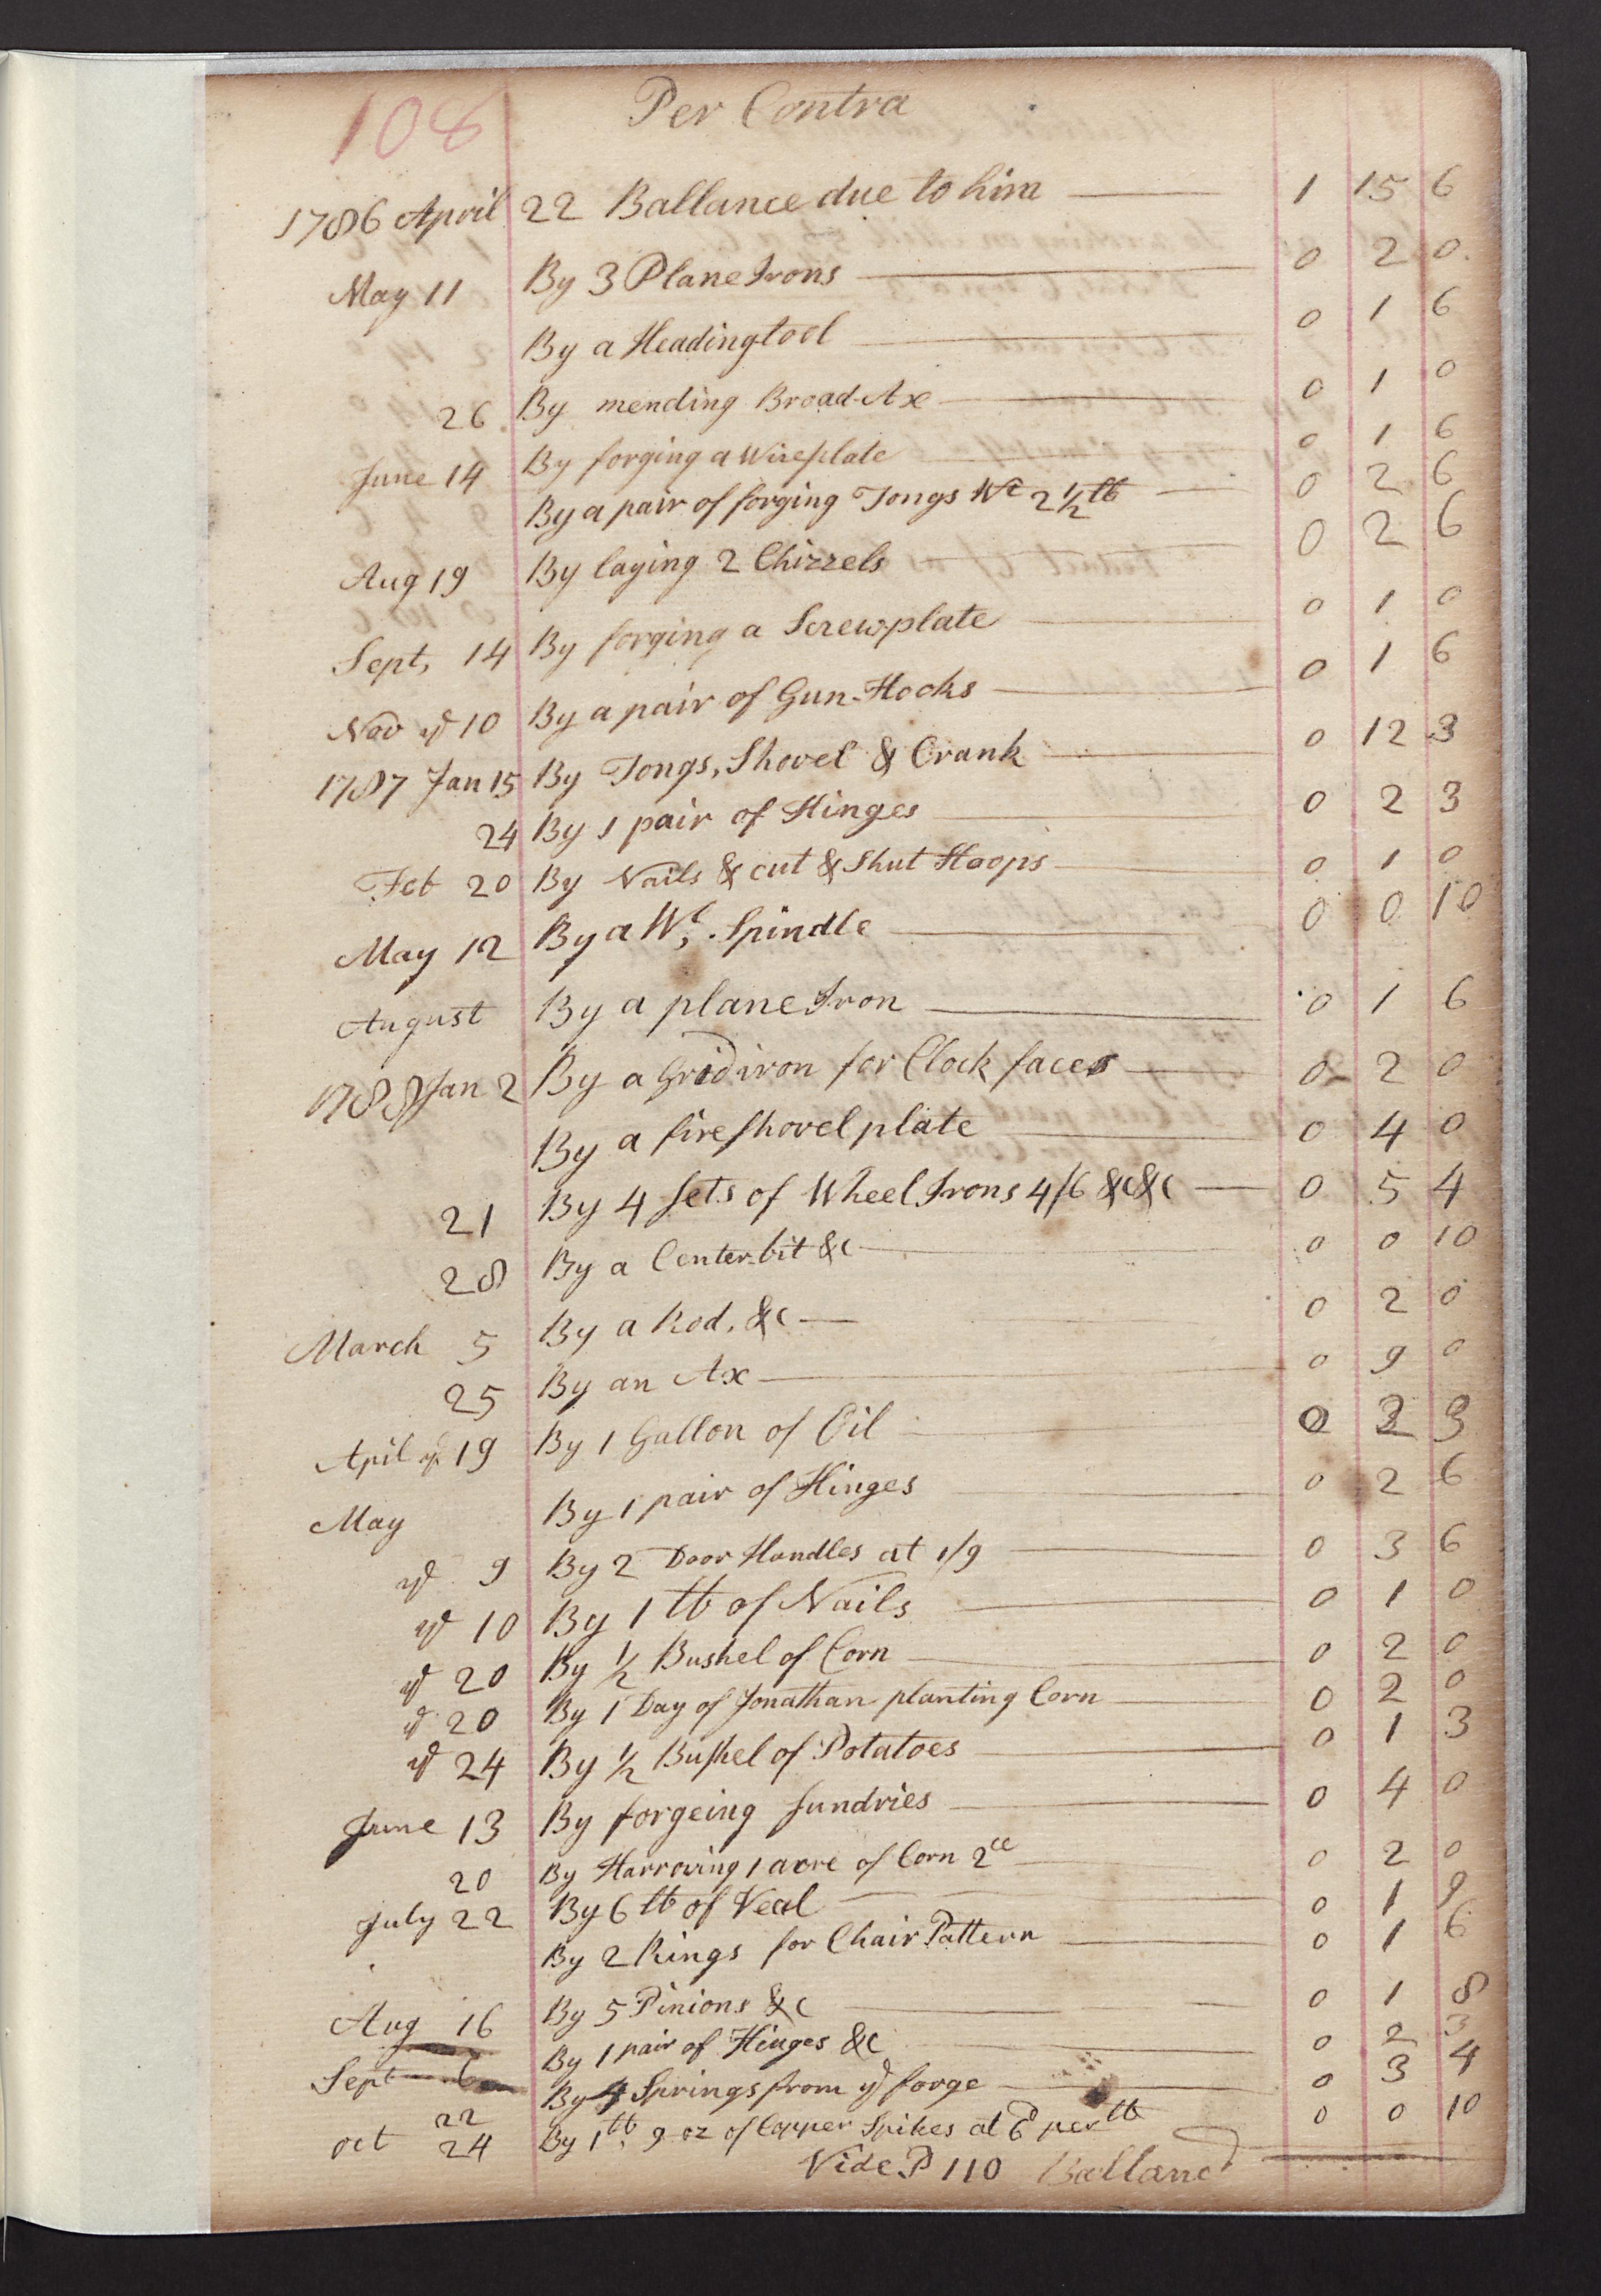 108
Per Contra
1786 April 22 Ballance due to him 1 15 6
May 11 By 3 Plane Irons 0 2 0
By a Headingtool 0 1 6
26 By mending Broad-Ax 0 1 0
June 14 By forging a Wireplate 0 1 6
By a pair of forging Tongs Wt 2 1/2 lb 0 2 6
Aug 19 By laying 2 Chizzels 0 2 6
Sept, 14 By forging a Screwplate 0 1 0
Nov ye 10 By a pair of Gun-Hooks 0 1 6
1787 Jan 15 By Tongs, Shovel & Crank 0 12 3
24 By 1 pair of Hinges 0 2 3
Feb 20 By Nails & cut & Shut Hoops 0 1 0
May 12 By a Wl, Spindle 0 0 10
August By a plane Iron 0 1 6
1788 Jan 2 By a Gridiron for Clock faces 0 2 0
By a fireshovel plate 0 4 0
21 By 4 sets of Wheel Irons 4/6 &c&c 0 5 4
28 By a Center-bit &c 0 0 10
March 5 By a Rod, &c 0 2 0
25 By an Ax 0 9 0
Apil ye 19 By 1 Gallon of Oil 0 2 3
May By 1 pair of Hinges 0 2 6
ye 9 By 2 Door Handles at 1/9 0 3 6
ye 10 By 1 lb of Nails 0 1 0
ye 20 By 1/2 Bushel of Corn 0 2 0
ye 20 By 1 Day of Jonathan planting Corn 0 2 0
ye 24 By 1/2 Bushel of Potatoes 0 1 3
June 13 By forgeing sundries 0 4 0
20 By Harrowing 1 acre of Corn 2ce 0 2 0
July 22 By 6 lb of Veal 0 1 9
By 2 Rings for Chair Pattern 0 1 6
Aug 16 By 5 Pinions &c 0 1 8
Sept 6 By 1 pair of Hinges &c 0 2 3
22 By 4 Springs from ye forge 0 3 4
oct 24 By 1 lb, 9 oz of Copper Spikes at 6d per lb 0 0 10
Vide P 110 Balland